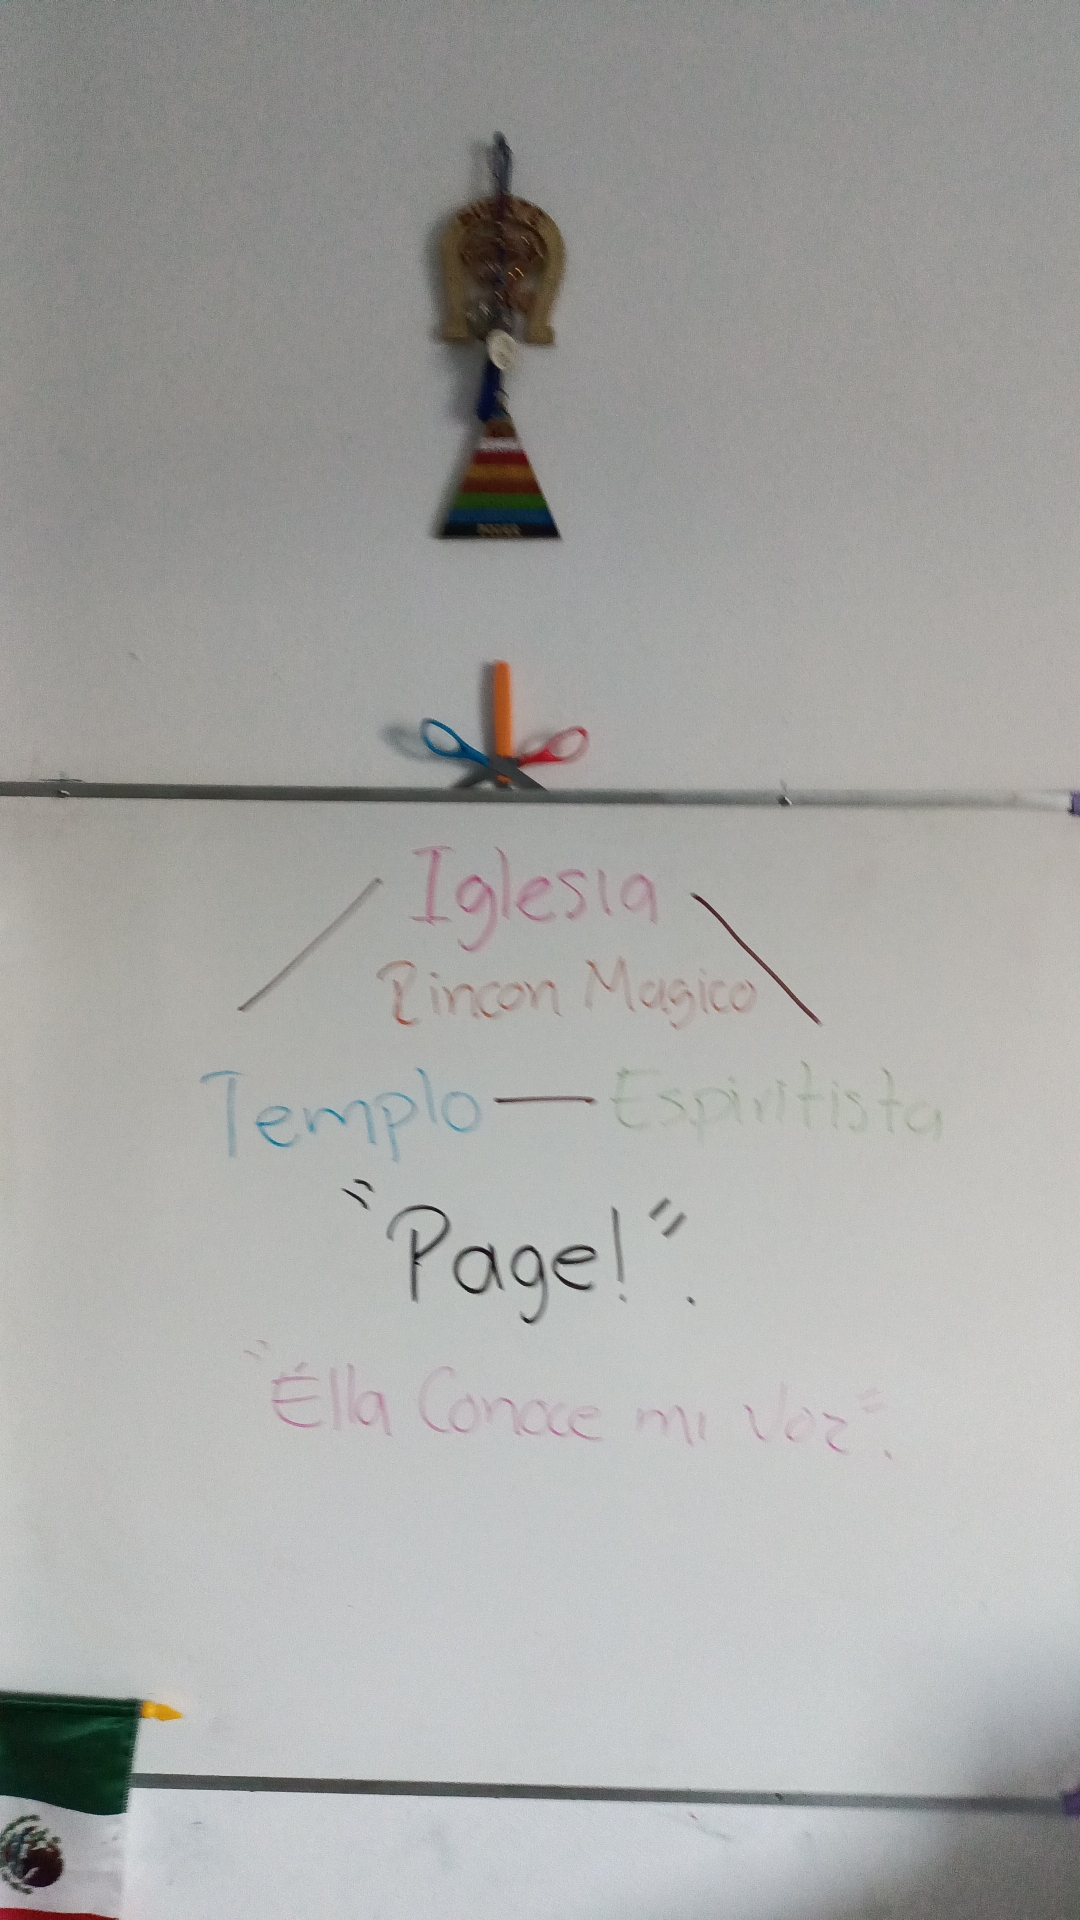 Iglesia
Rincon Magico
Templo — Espiritista
"Page!".
"Ella Conoce mi Voz".